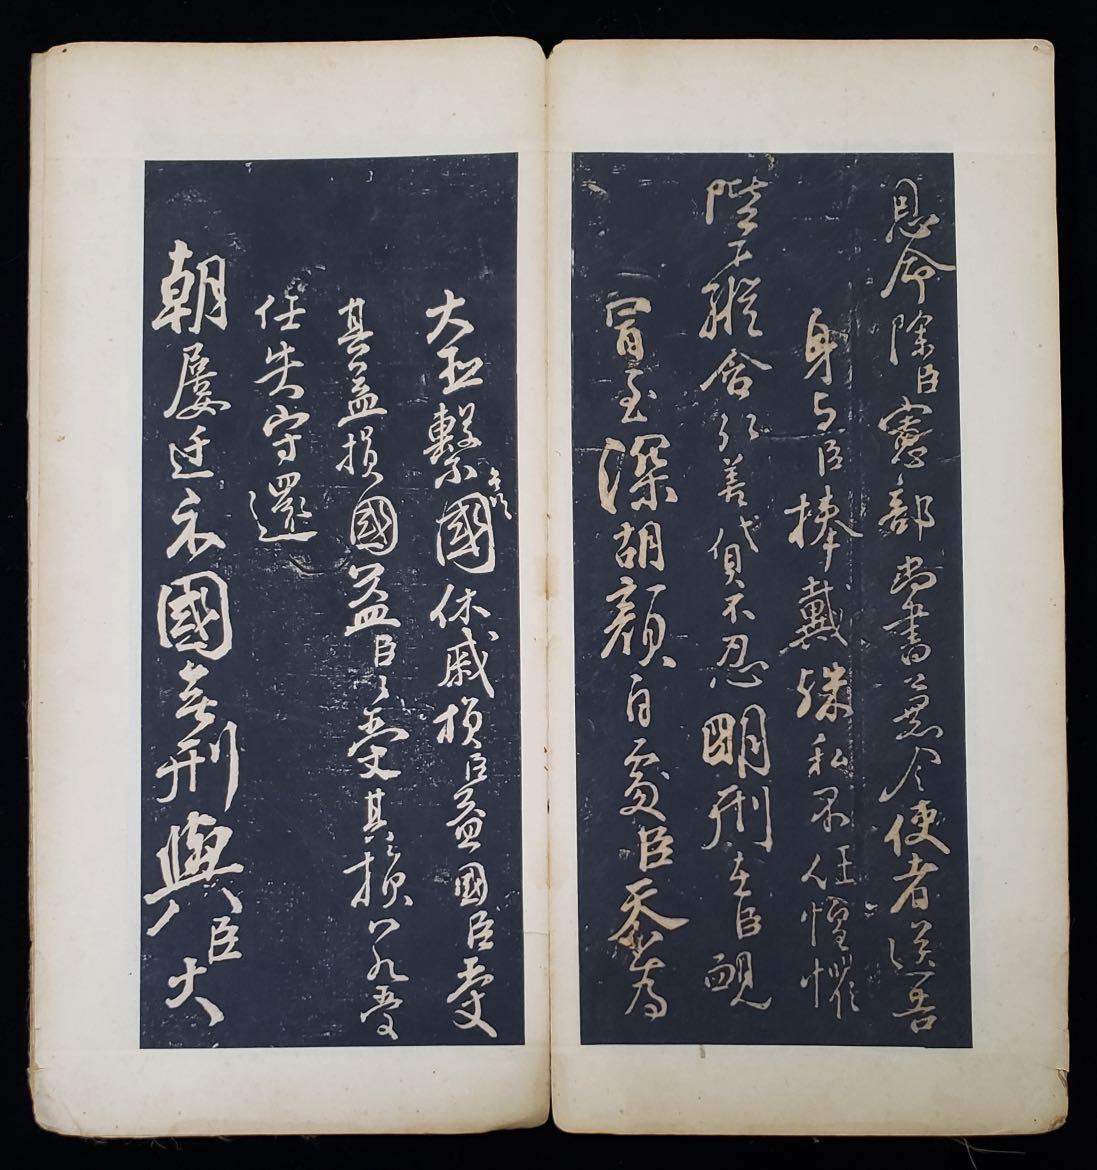 恩命除臣憲部尚書兼令使者送告
身与臣捧戴殊私不任惶懼
陛下縱含弘善貸不忍明刑在臣靦
冒至深胡顏自處臣為
大臣繫國休戚損臣益國臣受
其益損國益臣臣受其損受
任失守還
朝屢迁示國無刑與臣大